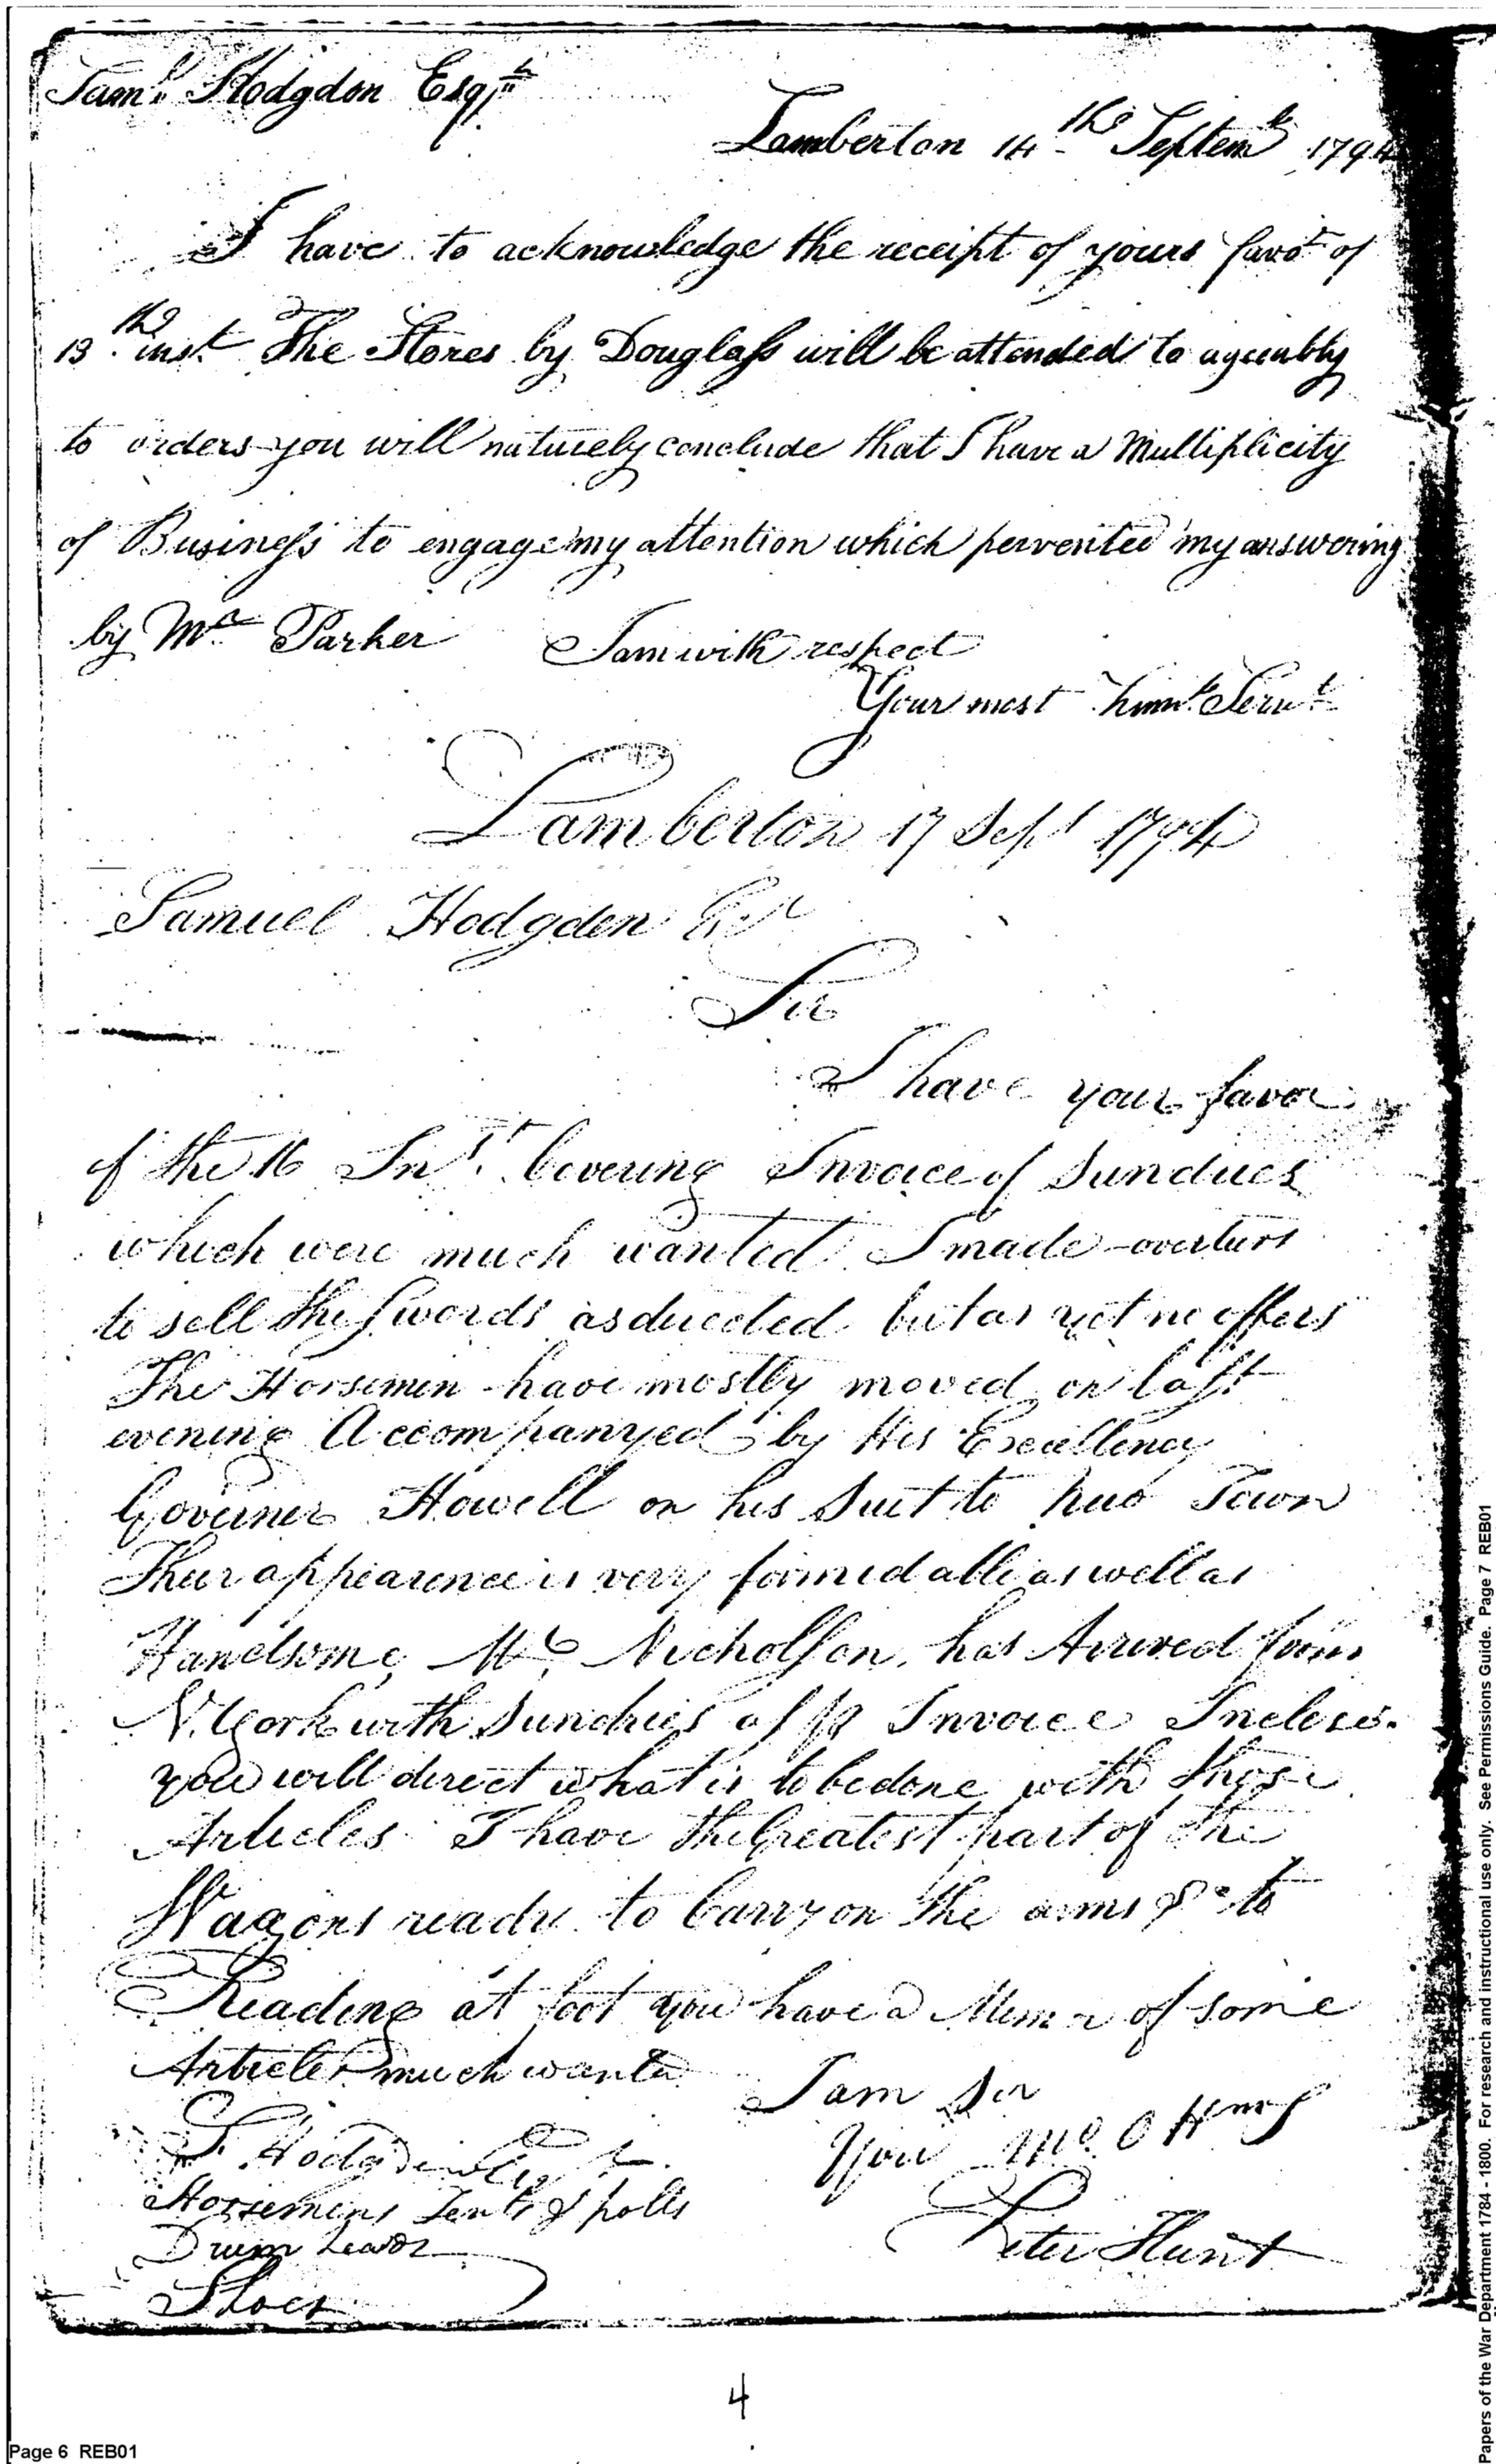 Saml. Hodgdon Esqr
Lamberton 14th Septemb 1794
I have to acknowledge the receipt of yours favor of
13th inst The Stores by Douglass will be attended to agreeably
to orders you will naturely conclude that I have a Multiplicity
of Business to engage my attention which pervented my answering
by Mr Parker I am with respect
Your most humle Servt
Lamberton 17 Sept 1794
Samuel Hodgden Esr
Sir
I have your favor
of the 16 Inst. Covering Invoice of Sundries
which were much wanted I made overturs
to sell the Swords as directed but as yet no offers
The Horsemen have mostly moved on last
evening Accompanyed by His Excellency
Governer Howell on his Suit to
Town
Their appearence is very formidable as well as
Handsome Mr Nicholson has Arrived from
N. York with Sundries as pr Invoice Inclosd.
you will direct what is to be done with those
Articles I have the Greatest part of the
Wagons ready to Carry on the arms &c to
Reading at foot you have a Memr of some
Articles much wanted
I am Sir
Your Mo. O
S Hodgden Esqr
Horsemens Tents & polls
Drum heads
Peter Hunt
Shoes
4
Page 6 REB01
Papers of the War Department 1784 - 1800. For research and instructional use only. See Permissions Guide. Page 7 REB01